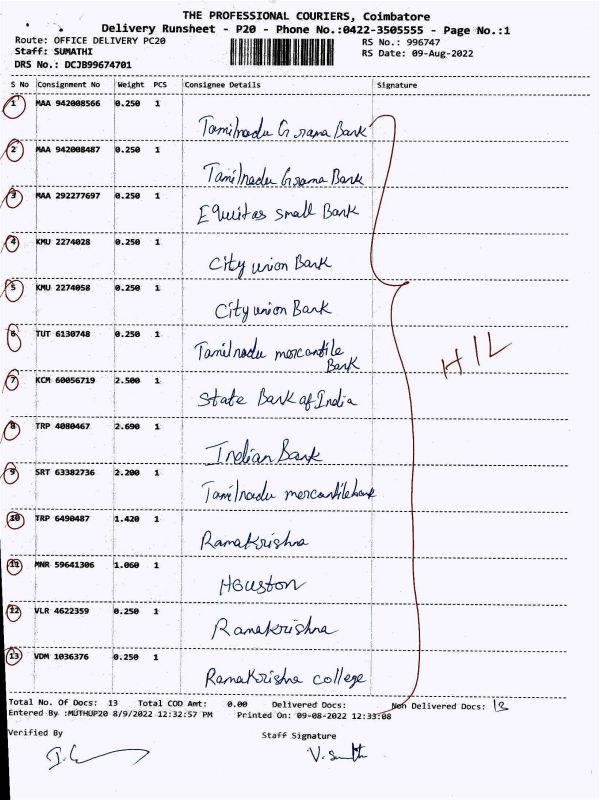 THE PROFESSIONAL COURIERS, Coimbatore
Delivery Runsheet - P20 - Phone No.:0422-3505555 - Page No.:1
Route: OFFICE DELIVERY PC20 RS No.: 996747
Staff: SUMATHI RS Date: 09-Aug-2022
DRS No.: DCJB99674701
S No Consignment No Weight PCS Consignee Details Signature
1 MAA 942008566 0.250 1
Tamilnadu Grama Bank
2 MAA 942008487 0.250 1
Tamilnadu Grama Bank
3 MAA 292277697 0.250 1
Equitas small Bank
4 KMU 2274028 0.250 1
City union Bank
5 KMU 2274058 0.250 1
City union Bank
6 TUT 6130748 0.250 1
Tamilnadu mercantile
Bank
HIL
7 KCM 60056719 2.500 1
State Bank of India
8 TRP 4080467 2.690 1
Indian Bank
9 SRT 63382736 2.200 1
Tamilnadu mercantile bank
10 TRP 6490487 1.420 1
Ramakrishna
11 MNR 59641306 1.060 1
Houston
12 VLR 4622359 0.250 1
Ramakrishna
13 VDM 1036376 0.250 1
Ramakrishna college
Total No. Of Docs: 13 Total COD Amt: 0.00 Delivered Docs: Non Delivered Docs: 13
Entered By :MUTHUP20 8/9/2022 12:32:57 PM Printed On: 09-08-2022 12:33:08
Verified By Staff Signature